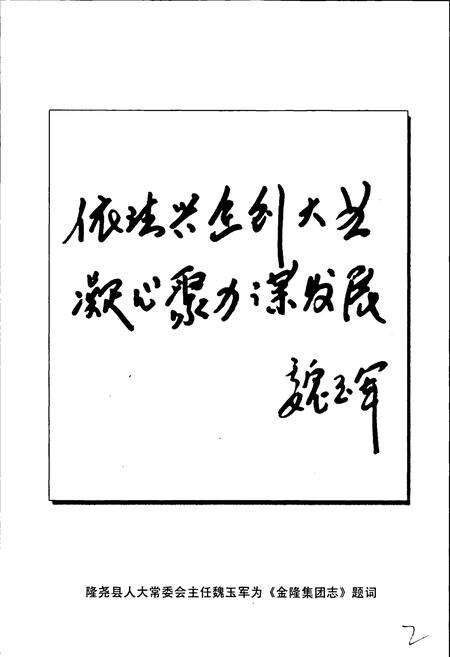 依法兴企创大业
凝心聚力谋发展
魏玉军
隆尧县人大常委会主任魏玉军为《金隆集团志》题词
2